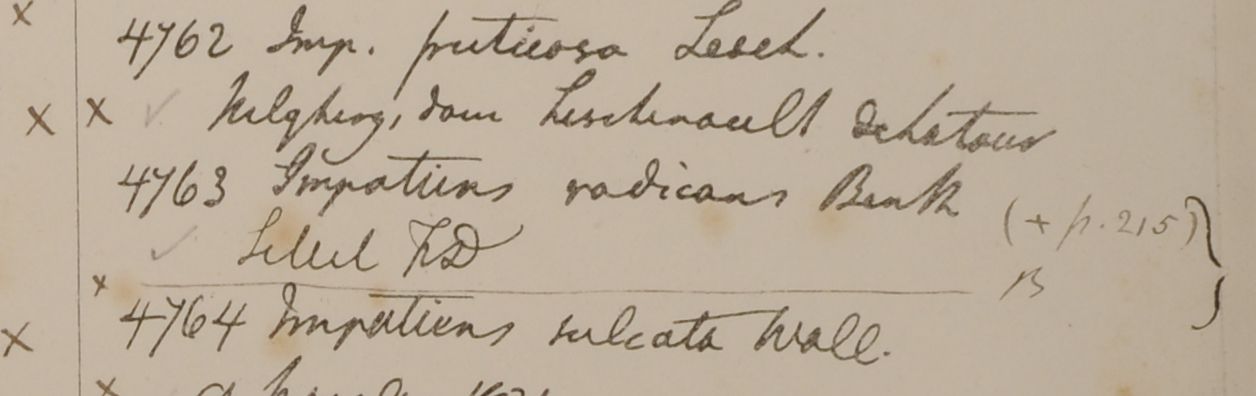 4762 Imp. fruticosa Lesch.
Neilghery, dom Leschenault
4763 Impatiens radicans Benth
(+ p. 215)
Silhet FD
B
4764 Impatiens sulcata Wall.